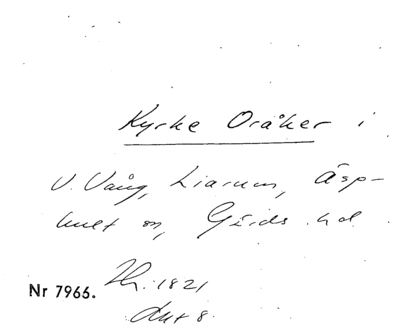 Kyrke Oråker i
V. Vång, Liarum, Äsp-
hult sn, Gärds hd.
Nr 7966. 1821
Akt 8.